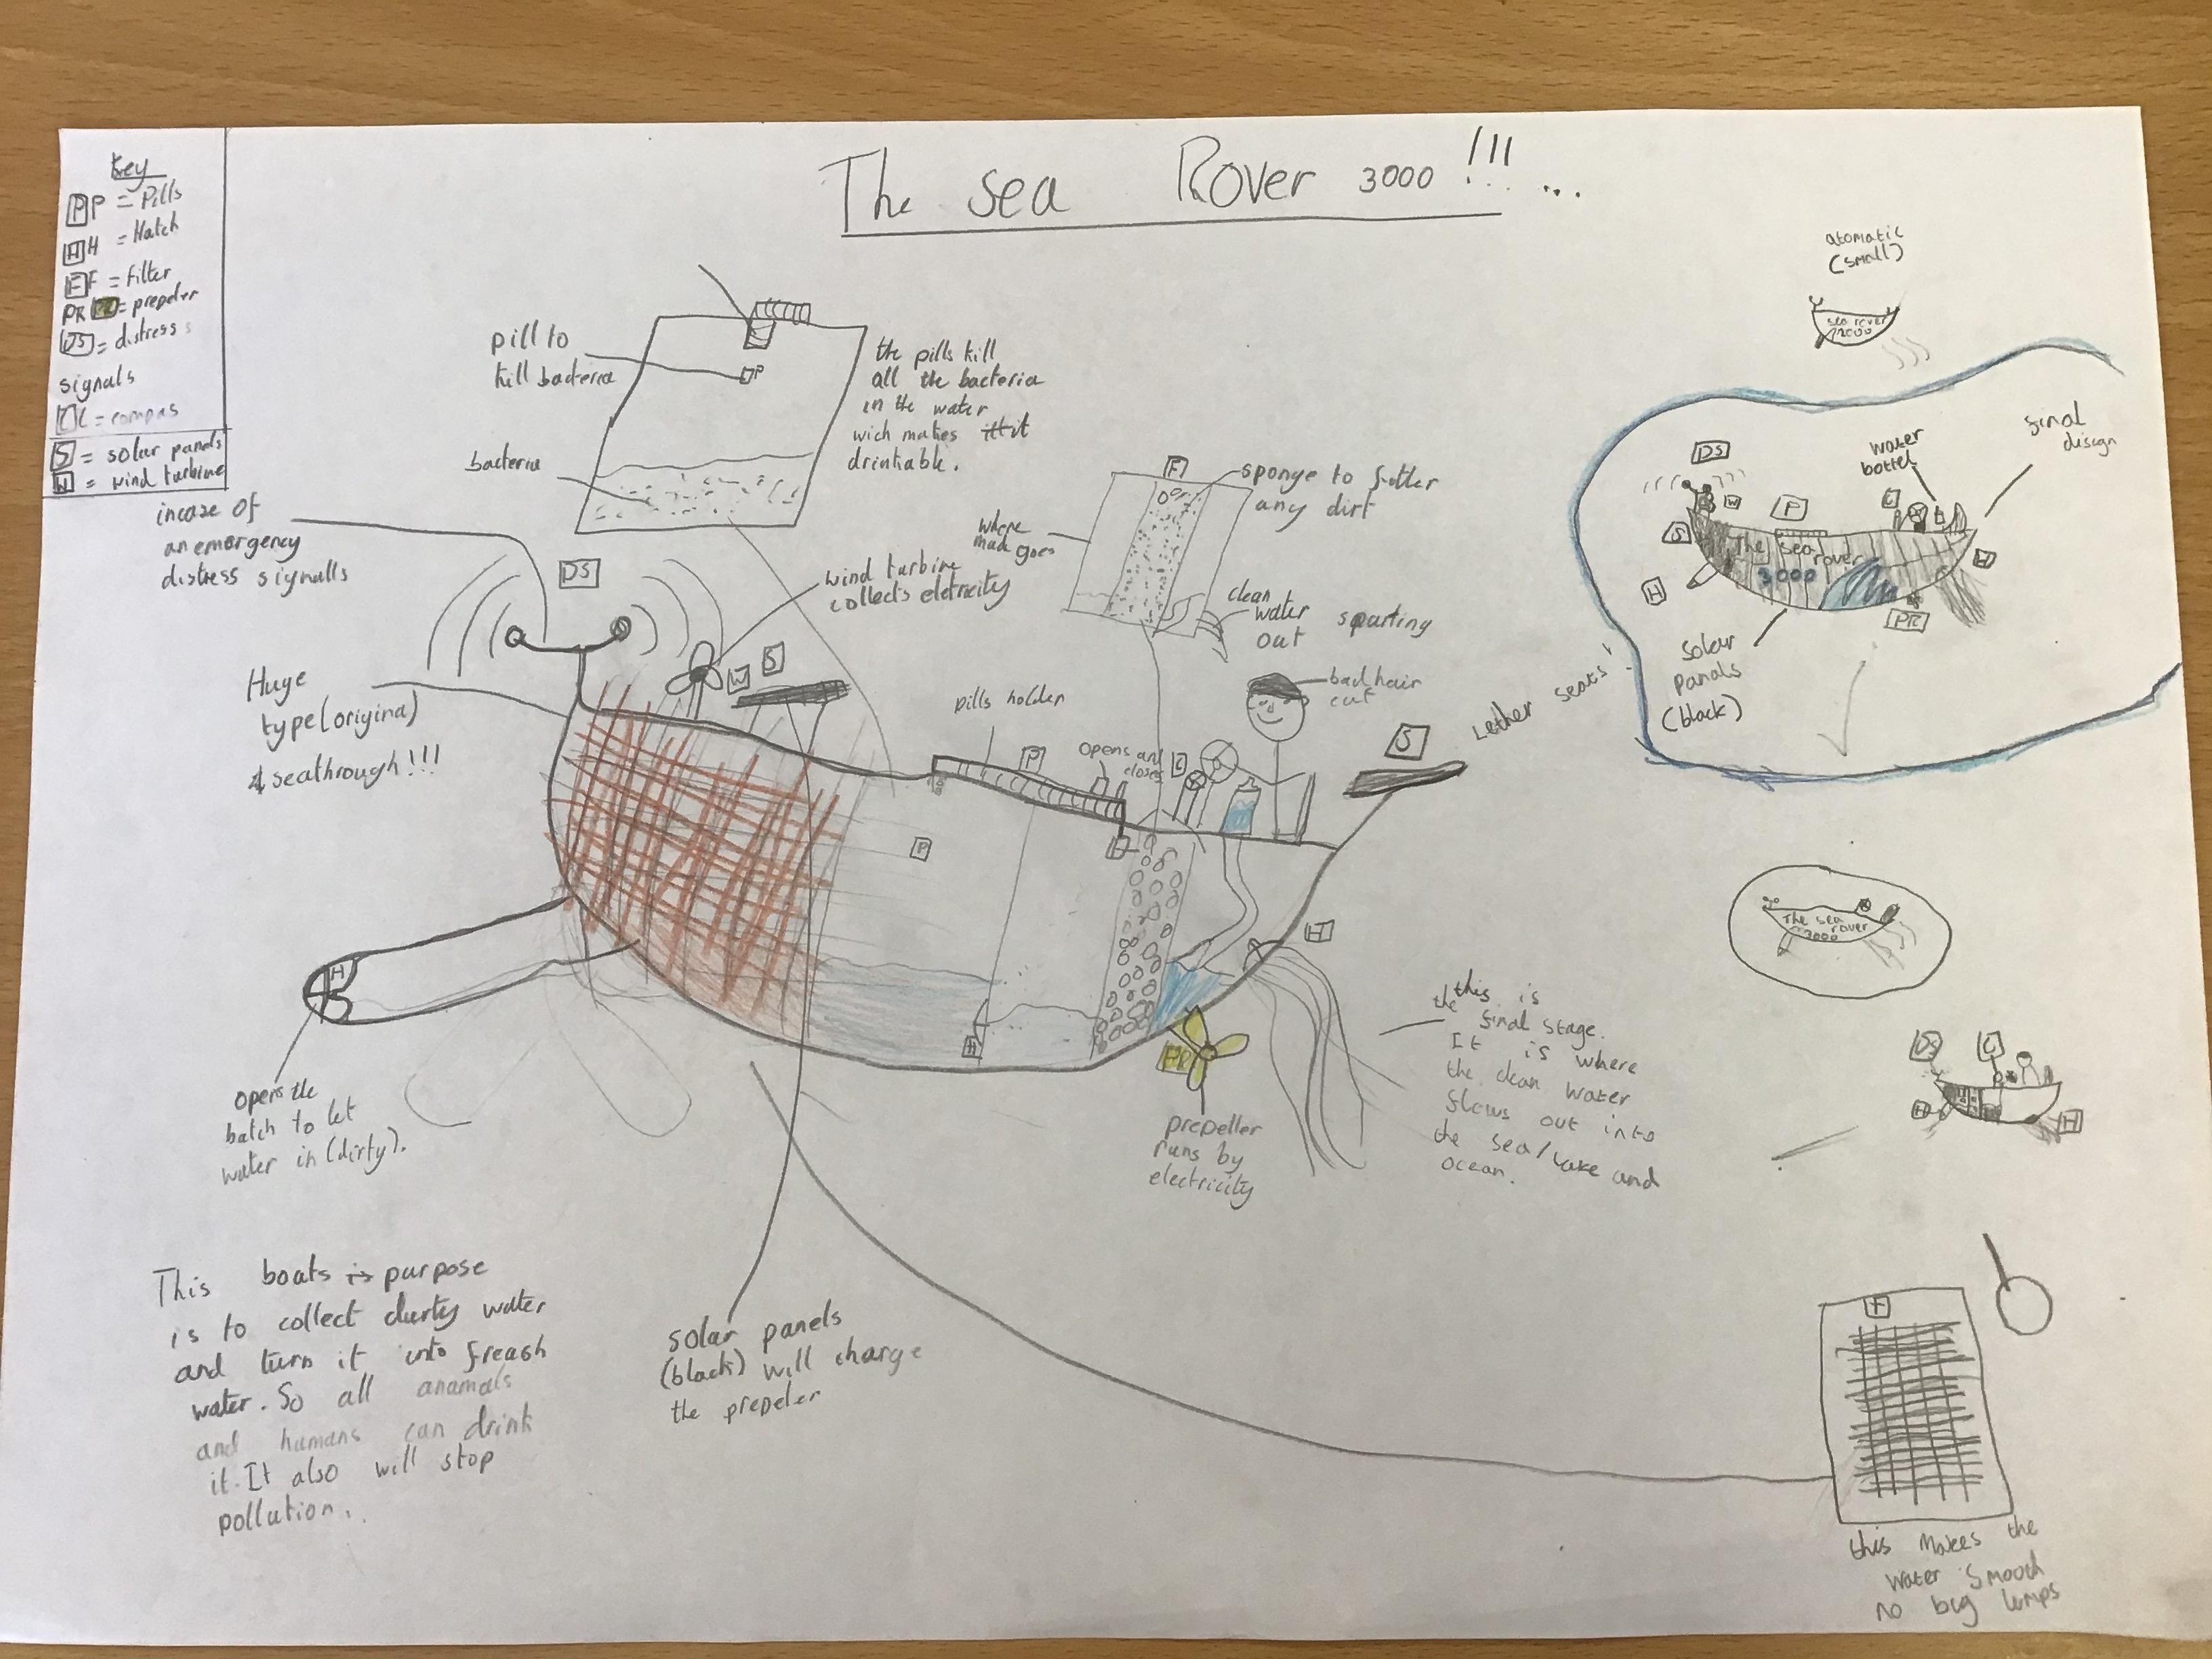 The sea Rover 3000 !!! ...
Key
P P = Pills
H H = Hatch
F F = filter
PR PR = prepeler
DS = distress s
signals
C C = compas
S = solar panels
W = wind turbine
incase of
an emergency
distress signalls
Huge
type (original)
& seathrough!!!
DS
pill to
kill bacteria
P
bacteria
the pills kill
all the bacteria
in the water
wich makes it it
drinkable.
wind turbine
collects eletricity
W
S
F
sponge to filter
any dirt
where
mud goes
clean
water
out sparting
bad hair
cut
pills holder
P
opens and
closes
C
S
Lether seats!
P
H
H
H
PR
opens the
hatch to let
water in (dirty).
prepeller
runs by
electricity
the this is
final stage.
It is where
the clean water
flows out into
the sea/lake and
ocean.
This boats is purpose
is to collect durty water
and turn it into freash
water. So all anamals
and humans can drink
it. It also will stop
pollution..
solar panels
(black) will charge
the prepeler
atomatic
(small)
sea rover
3000
final
disign
water
bottel
DS
W
P
C
S
The sea
rover
3000
H
H
PR
solar
panals
(black)
The sea
rover
3000
DS
C
H
H
F
this makes the
water smooth
no big lumps